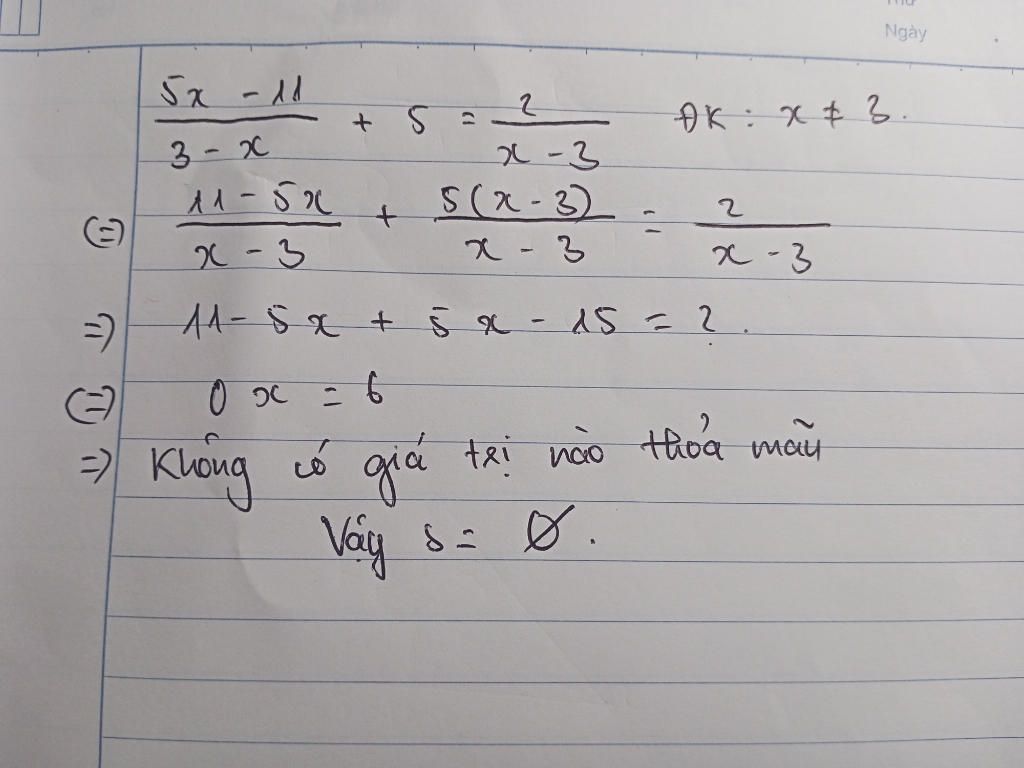 Thứ
Ngày
(5x - 11)/(3 - x) + 5 = 2/(x - 3) ĐK : x ≠ 3.
(=) (11 - 5x)/(x - 3) + (5(x - 3))/(x - 3) = 2/(x - 3)
=) 11 - 5x + 5x - 15 = 2.
(=) 0x = 6
=) Không có giá trị nào thỏa mãn
Vậy S = Ø.